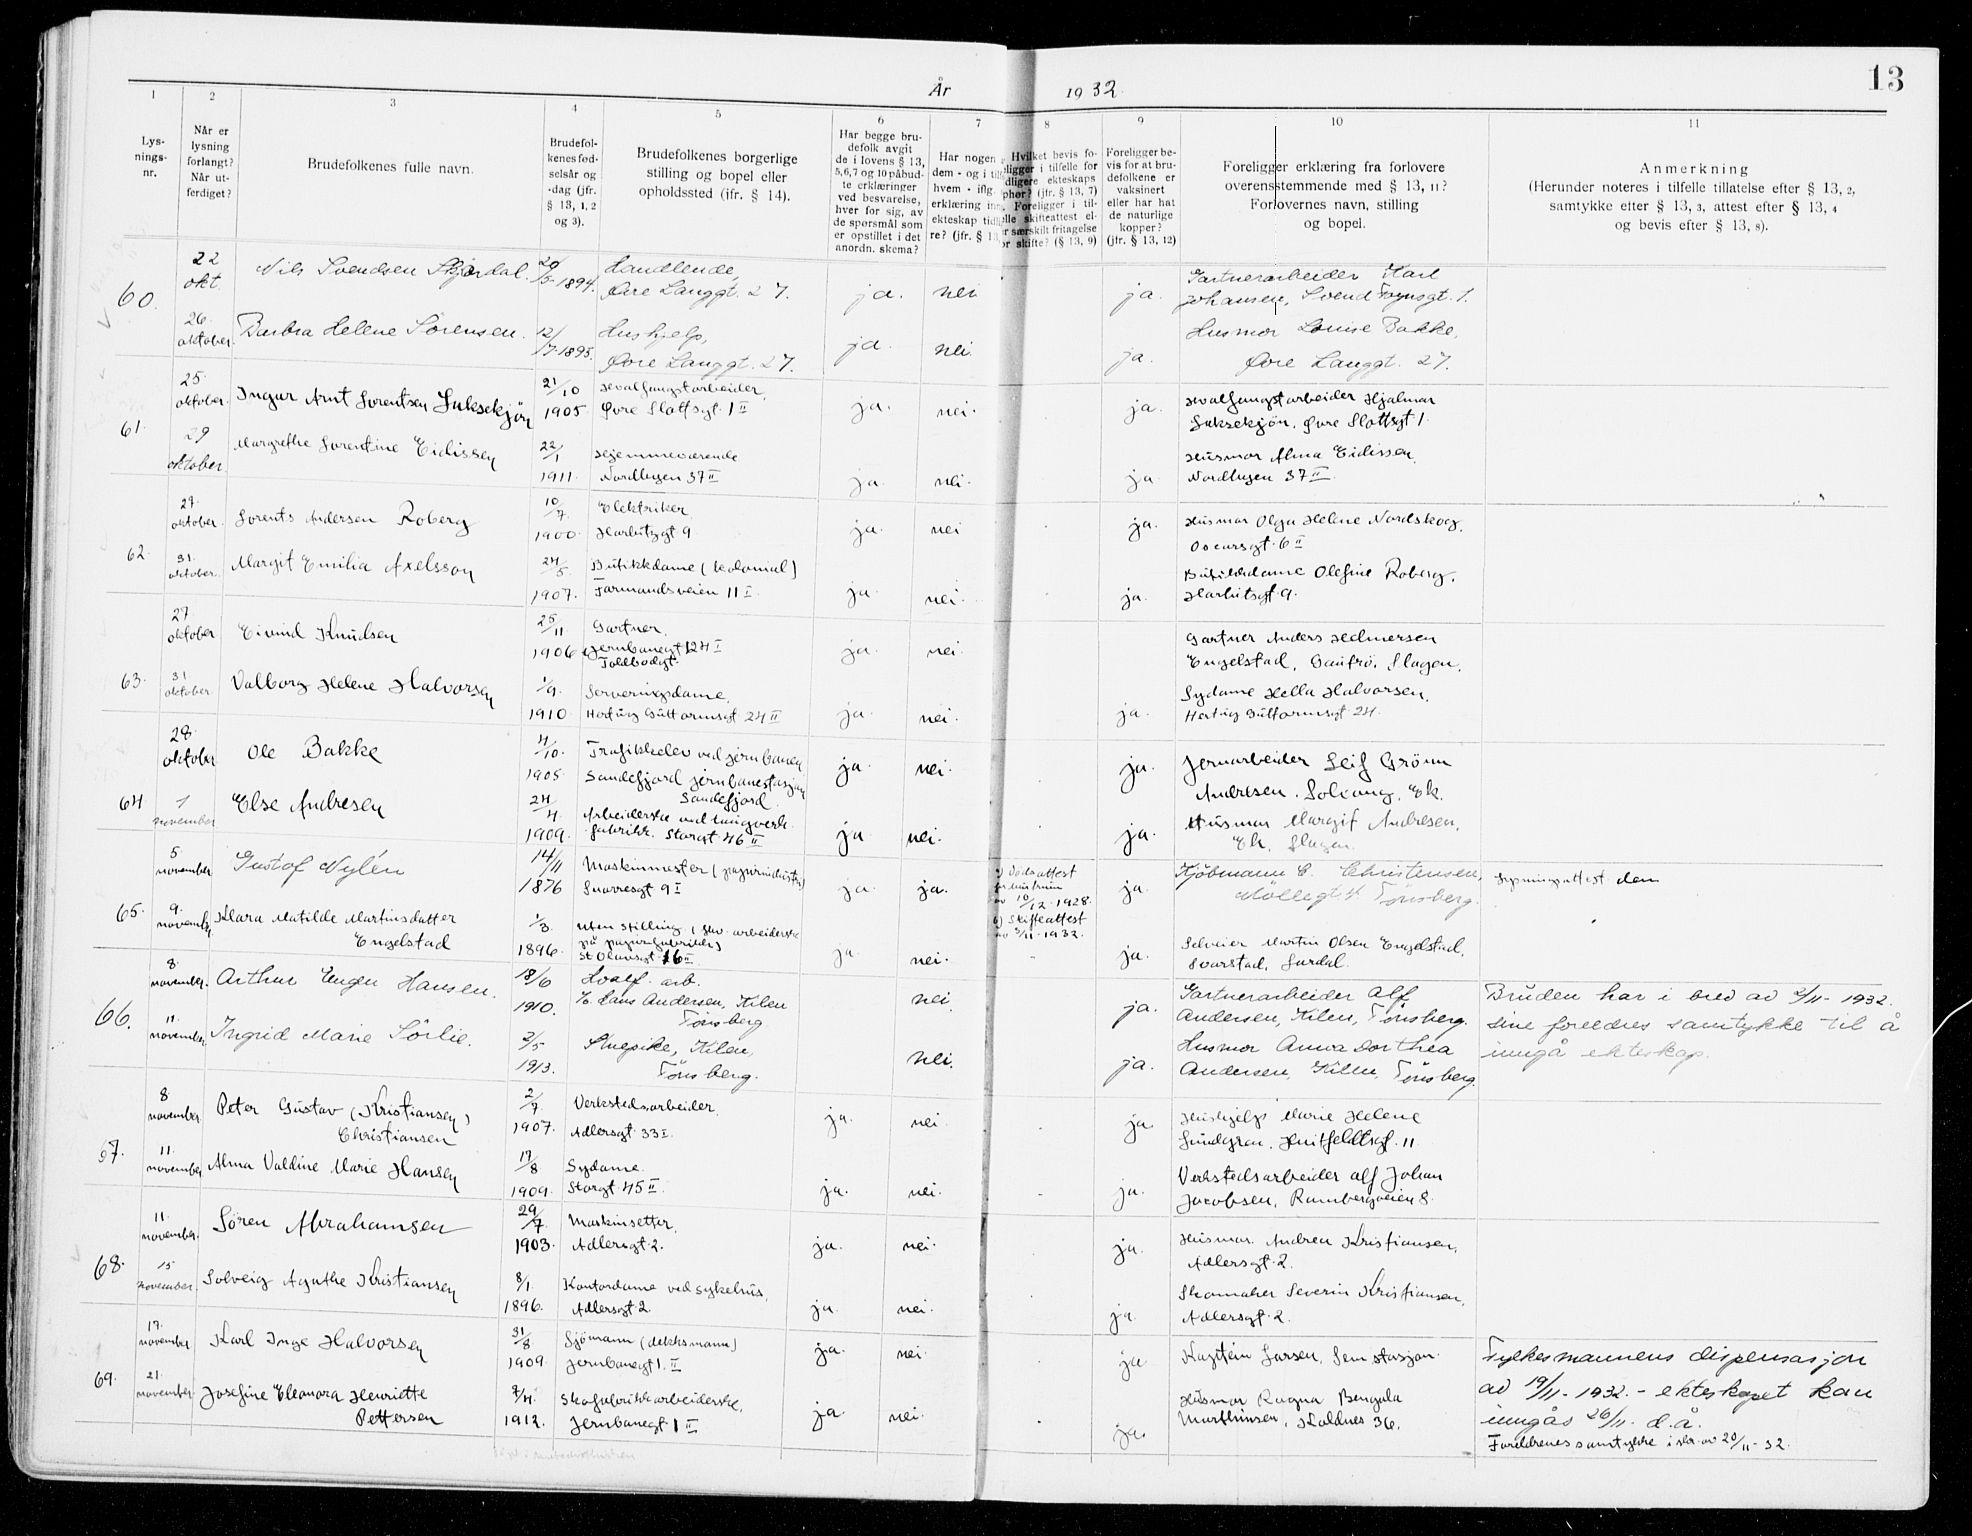 År 1932.
13
1 2 3 4 5 6 7 8 9 10 11
Lys-
nings-
nr.
Når er
lysning
forlangt?
Når ut-
ferdiget?
Brudefolkenes fulle navn.
Brudefol-
kenes fød-
selsår og
-dag (jfr.
§ 13, 1, 2
og 3).
Brudefolkenes borgerlige
stilling og bopel eller
opholdssted (jfr. § 14).
Har begge bru-
defolk avgit
de i lovens § 13,
5,6,7 og 10 påbud-
te erklæringer
ved besvarelse,
hver for sig, av
de spørsmål som
er opstillet i det
anordn. skema?
Har nogen
dem - og i
hvem - iflg.
erklæring
ekteskap
re? (jfr. § 13
Hvilket bevis fo-
ligger i tilfelle for
ekteskaps
(jfr. § 13, 7)
Foreligger i til-
skifteattest el-
særskilt fritagelse
skifte? (§ 13, 9)
Foreligger be-
vis for at bru-
defolkene er
vaksinert
eller har hat
de naturlige
kopper?
(jfr. § 13, 12)
Foreligger erklæring fra forlovere
overensstemmende med § 13, 11?
Forlovernes navn, stilling
og bopel.
Anmerkning
(Herunder noteres i tilfelle tillatelse efter § 13, 2,
samtykke efter § 13, 3, attest efter § 13, 4
og bevis efter § 13, 8).
60.
22 okt. Nils Svendsen 20/5-1894. Handlende,
Øvre Langgt. 27. ja. nei ja. Gartnerarbeider Karl
Johansen, Svend Foynsgt. 1.
26. oktober Barbra Helene Sørensen. 12/7-1895. Hushjelp,
Øvre Langgt. 27. ja. nei. ja. Husmor Louise Bakke,
Øvre Langgt. 27.
61.
25. oktober. Ingar Arnt Sorentsen Luksekjön 21/10 1905 Hvalfangstarbeider,
Øvre Slottsgt. 1 II ja. nei. ja. Hvalfangstarbeider Hjalmar
Luksekjön. Øvre Slottsgt 1.
29 oktober. Margrethe Sorentine Eidissen 22/1 1911. Hjemmeværende
Nordbyen 37 II ja. nei. ja. Husmor Alma Eidissen,
Nordbyen 37 II.
62.
27. oktober. Sorents Andersen Roberg 10/7. 1900. Elektriker
9 ja. nei ja. Husmor Olga Helene Nordskog,
Oscarsgt. 6 II
31. oktober. Margit Emilia Axelsson 24/5. 1907. Butikkdame (kolonial)
Farmandsveien 11 I. ja. nei. ja. Butikkdame Olefine Roberg,
9.
63.
27 oktober Eivind Knudsen 25/11 1906 Gartner,
Jernbanegt 24 I
Tollbodgt. ja. nei. Gartner Anders Helmersen
Engelstad, Slagen.
31 oktober Valborg Helene Halvorsen 1/9. 1910. Serveringsdame,
Hertug Guttormsgt 24 II ja. nei. ja. Sydame Hella Halvorsen,
Hertug Guttormsgt. 24.
64
28. oktober Ole Bakke 4/10. 1905. Trafikkelev ved jernbanen
Sandefjord jernbanestasjon
Sandefjord. ja. nei. ja. Jernarbeider Leif Grönn
Andresen. Solvang, Ek.
1 november Else Andresen 24/4. 1909. Arbeiderske ved
fabrikk. Storgt 46 II ja nei. ja. Husmor Margit Andresen,
Ek, Slagen.
65.
5. november Gustof Nylén 14/11 1876 Maskinmester (papirindustri)
Snorresgt 9 I ja ja. a) Dødsattest
for hustruen
av 10/12. 1928.
b) Skifteattest
av 3/11. 1932. ja. Kjöbmann C. Christensen,
Möllegt. 4. Tönsberg. Lysningsattest den
9. november Klara Matilde Martinsdatter
Engelstad 1/3. 1896. Uten stilling (før arbeiderske
på papirfabrikk)
St Olavsgt 16 II. ja. nei. ja. Selveier Martin Olsen Engelstad,
Svarstad, Lardal.
66.
8. november. Arthur Eugen Hansen. 18/6 1910. Hvalf. arb.
Lars Andersen, Kilen
Tönsberg nei ja. Gartnerarbeider Alf
Andersen, Kilen, Tönsberg. Bruden har i brev av 2/11-1932.
sine foreldres samtykke til å
inngå ekteskap.
11. november. Ingrid Marie Sörlie. 2/5 1913. Stuepike, Kilen,
Tönsberg. nei. ja. Husmor Anna Dorthea
Andersen, Kilen, Tönsberg.
67.
8. november Peter Gustav (Kristiansen)
Christiansen 2/7 1907. Verkstedsarbeider,
Adlersgt. 33 I. ja. nei. ja. Hushjelp Marie Helene
Lundgren, Huitfeldtsgt. 11.
11. november Alma Valdine Marie Hansen 17/8 1909. Sydame.
Storgt. 45 II. ja. nei. ja. Verkstedsarbeider Alf Johan
Jacobsen, Rambergveien 8.
68.
11. november. Sören Abrahamsen 29/7. 1903. Maskinsetter,
Adlersgt. 2. ja. nei. ja. Husmor Andrea Kristiansen,
Adlersgt. 2.
15 november. Solveig Agathe Kristiansen 8/1. 1896. Kontordame ved sykehus,
Adlersgt 2. ja. nei. ja. Skomaker Severin Kristiansen,
Adlersgt. 2.
69.
17. november Karl Inge Halvorsen 31/8. 1909. Sjömann (dekksmann)
Jernbanegt 1. II ja. nei. ja Kaptein Larsen, Sem stasjon. Fylkesmannens dispensasjon
av 19/11-1932. - ekteskapet kan
inngås 26/11. d.å.
Foreldrenes samtykke i skr. av 20/11-32.
21. november Josefine Eleonora Henriette
Pettersen 7/4. 1912. Skofabrikkarbeiderske,
Jernbanegt 1 II ja. nei. ja. Husmor Ragna Bengula
Marthinsen, Kaldnes 36.